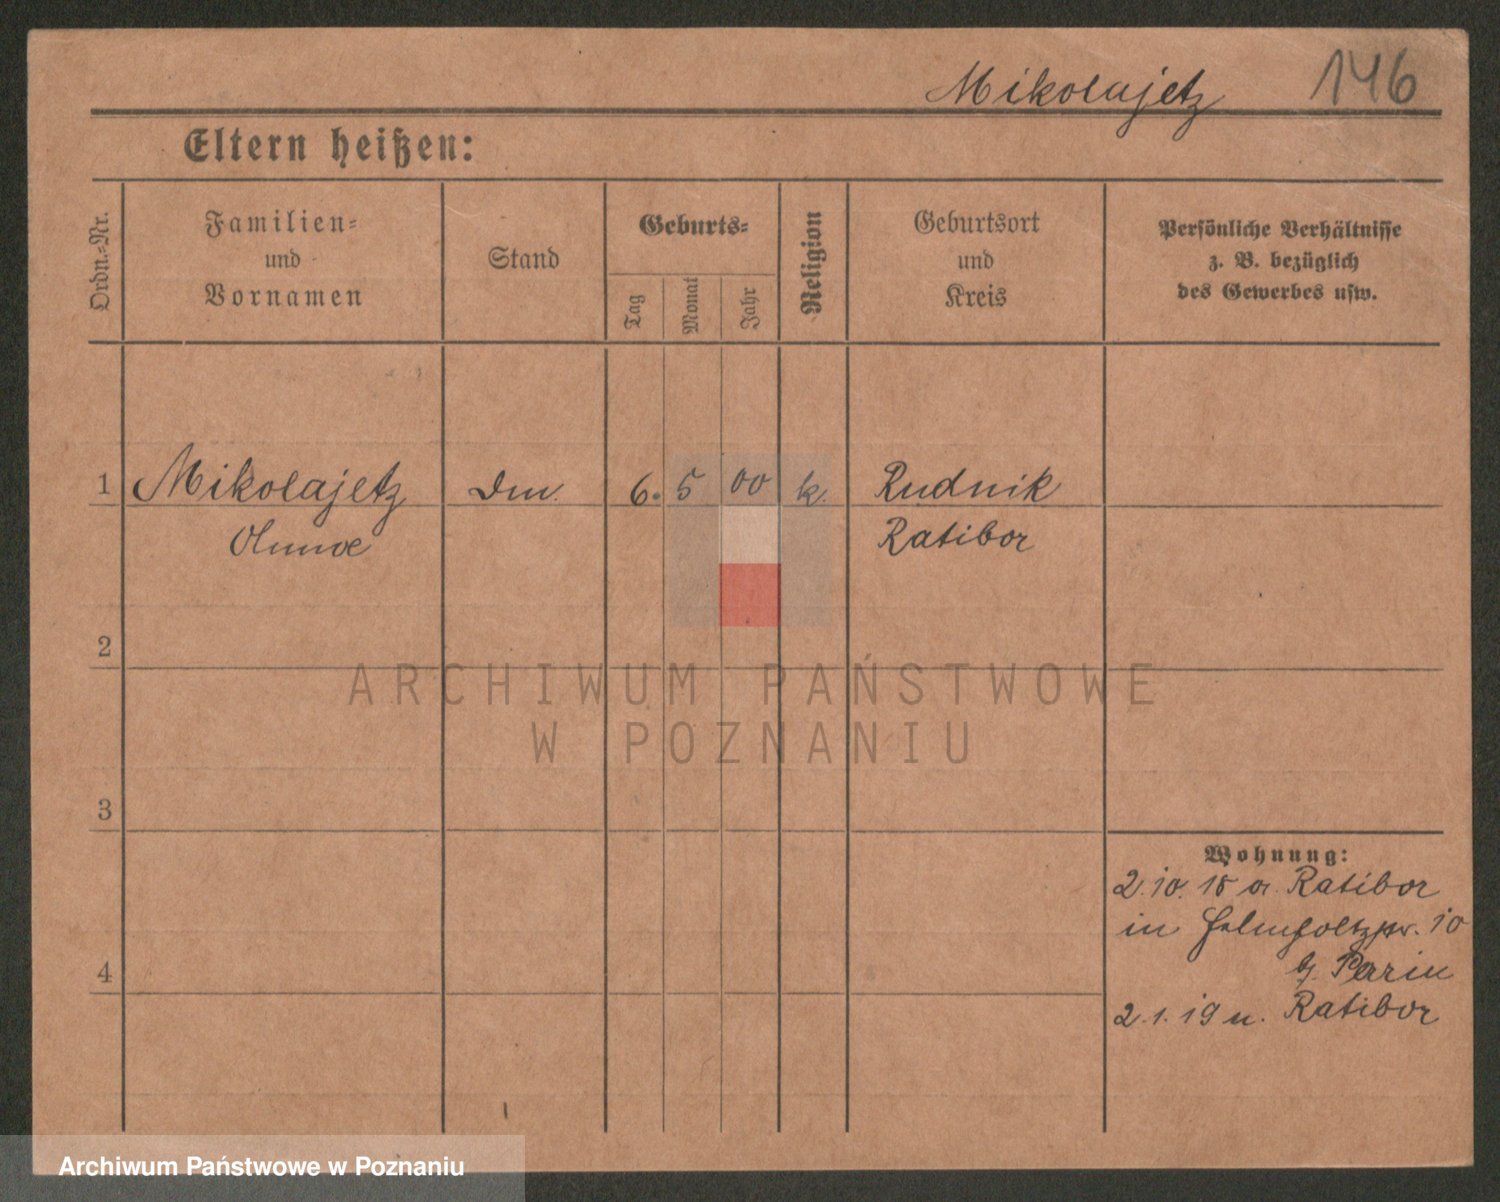 Mikolajetz 146
Eltern heißen:
Ordn.-Nr.
Familien-
und
Vornamen
Stand
Geburts-
Tag
Monat
Jahr
Religion
Geburtsort
und
Kreis
Persönliche Verhältnisse
z. B. bezüglich
des Gewerbes usw.
1 Mikolajetz 6. 5 00 k. Rudnik
Ratibor
2
ARCHIWUM PAŃSTWOWE
W POZNANIU
3
Wohnung:
2.10.18 a. Ratibor
in Helmholtzstr. 10
b. Perrin
4
2.1.19 n. Ratibor
Archiwum Państwowe w Poznaniu